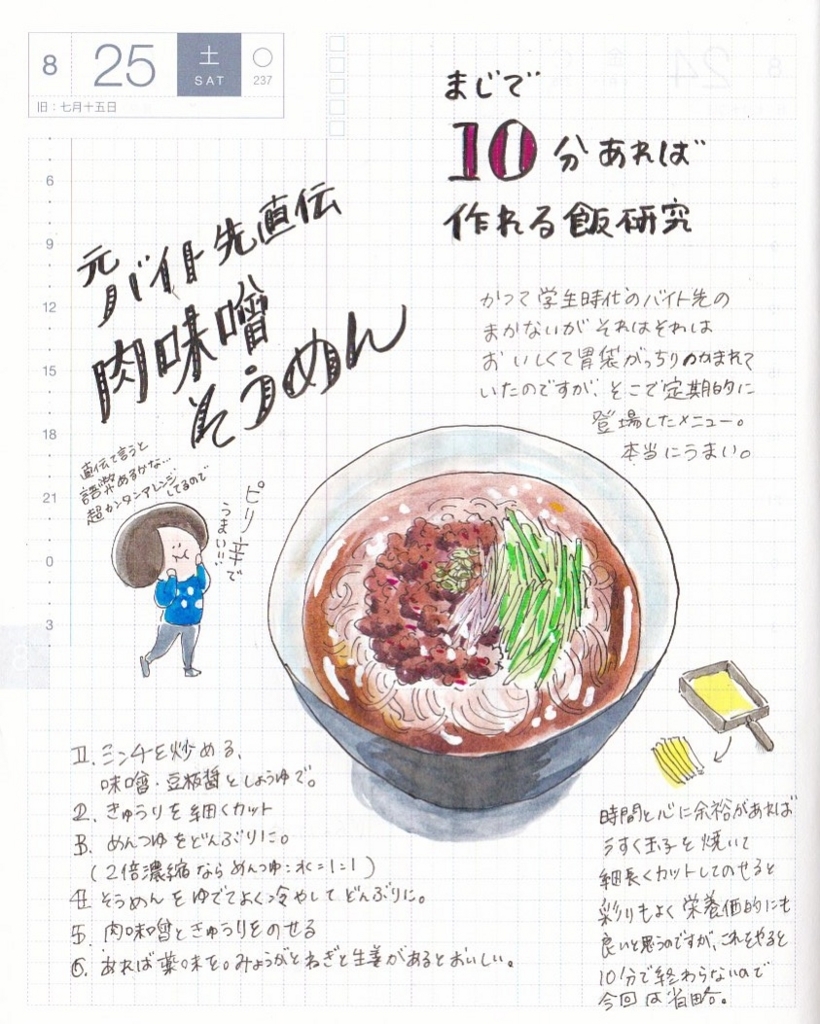 8
25
土
SAT
237
旧：七月十五日
6
9
12
15
18
21
0
3
まじで
10分あれば
作れる飯研究
元バイト先直伝
肉味噌
そうめん
かつて学生時代のバイト先の
まかないがそれはそれは
おいしくて胃袋がっちりつかまれて
いたのですが、そこで定期的に
登場したメニュー。
本当にうまい。
直伝て言うと
語弊あるかな…
超カンタンアレンジ
してるので
ピリ辛で
うまい!!!
1. ミンチを炒める、
味噌・豆板醤としょうゆで。
2. きゅうりを細くカット
3. めんつゆをどんぶりに。
(2倍濃縮ならめんつゆ:水=1:1)
4. そうめんをゆでてよく冷やしてどんぶりに。
5. 肉味噌ときゅうりをのせる
6. あれば薬味を。みょうがとねぎと生姜があるとおいしい。
時間と心に余裕があれば
うすく玉子を焼いて
細長くカットしてのせると
彩りもよく栄養価的にも
良いと思うのですが、これをやると
10分で終わらないので
今回は省略。